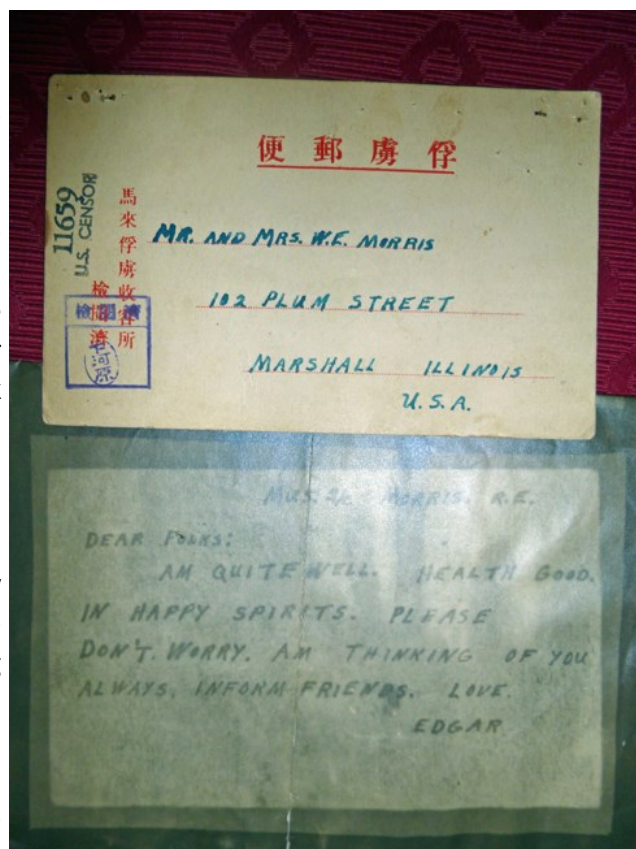 便郵虜俘
11659
U.S. CENSOR
馬來俘虜收容所
檢閱濟
檢閱濟
MR. AND MRS. W.E. MORRIS
102 PLUM STREET
MARSHALL ILLINOIS
U.S.A.
MUS. 2/C MORRIS, R.E.
DEAR FOLKS:
AM QUITE WELL. HEALTH GOOD.
IN HAPPY SPIRITS. PLEASE
DON'T. WORRY. AM THINKING OF YOU
ALWAYS. INFORM FRIENDS. LOVE.
EDGAR